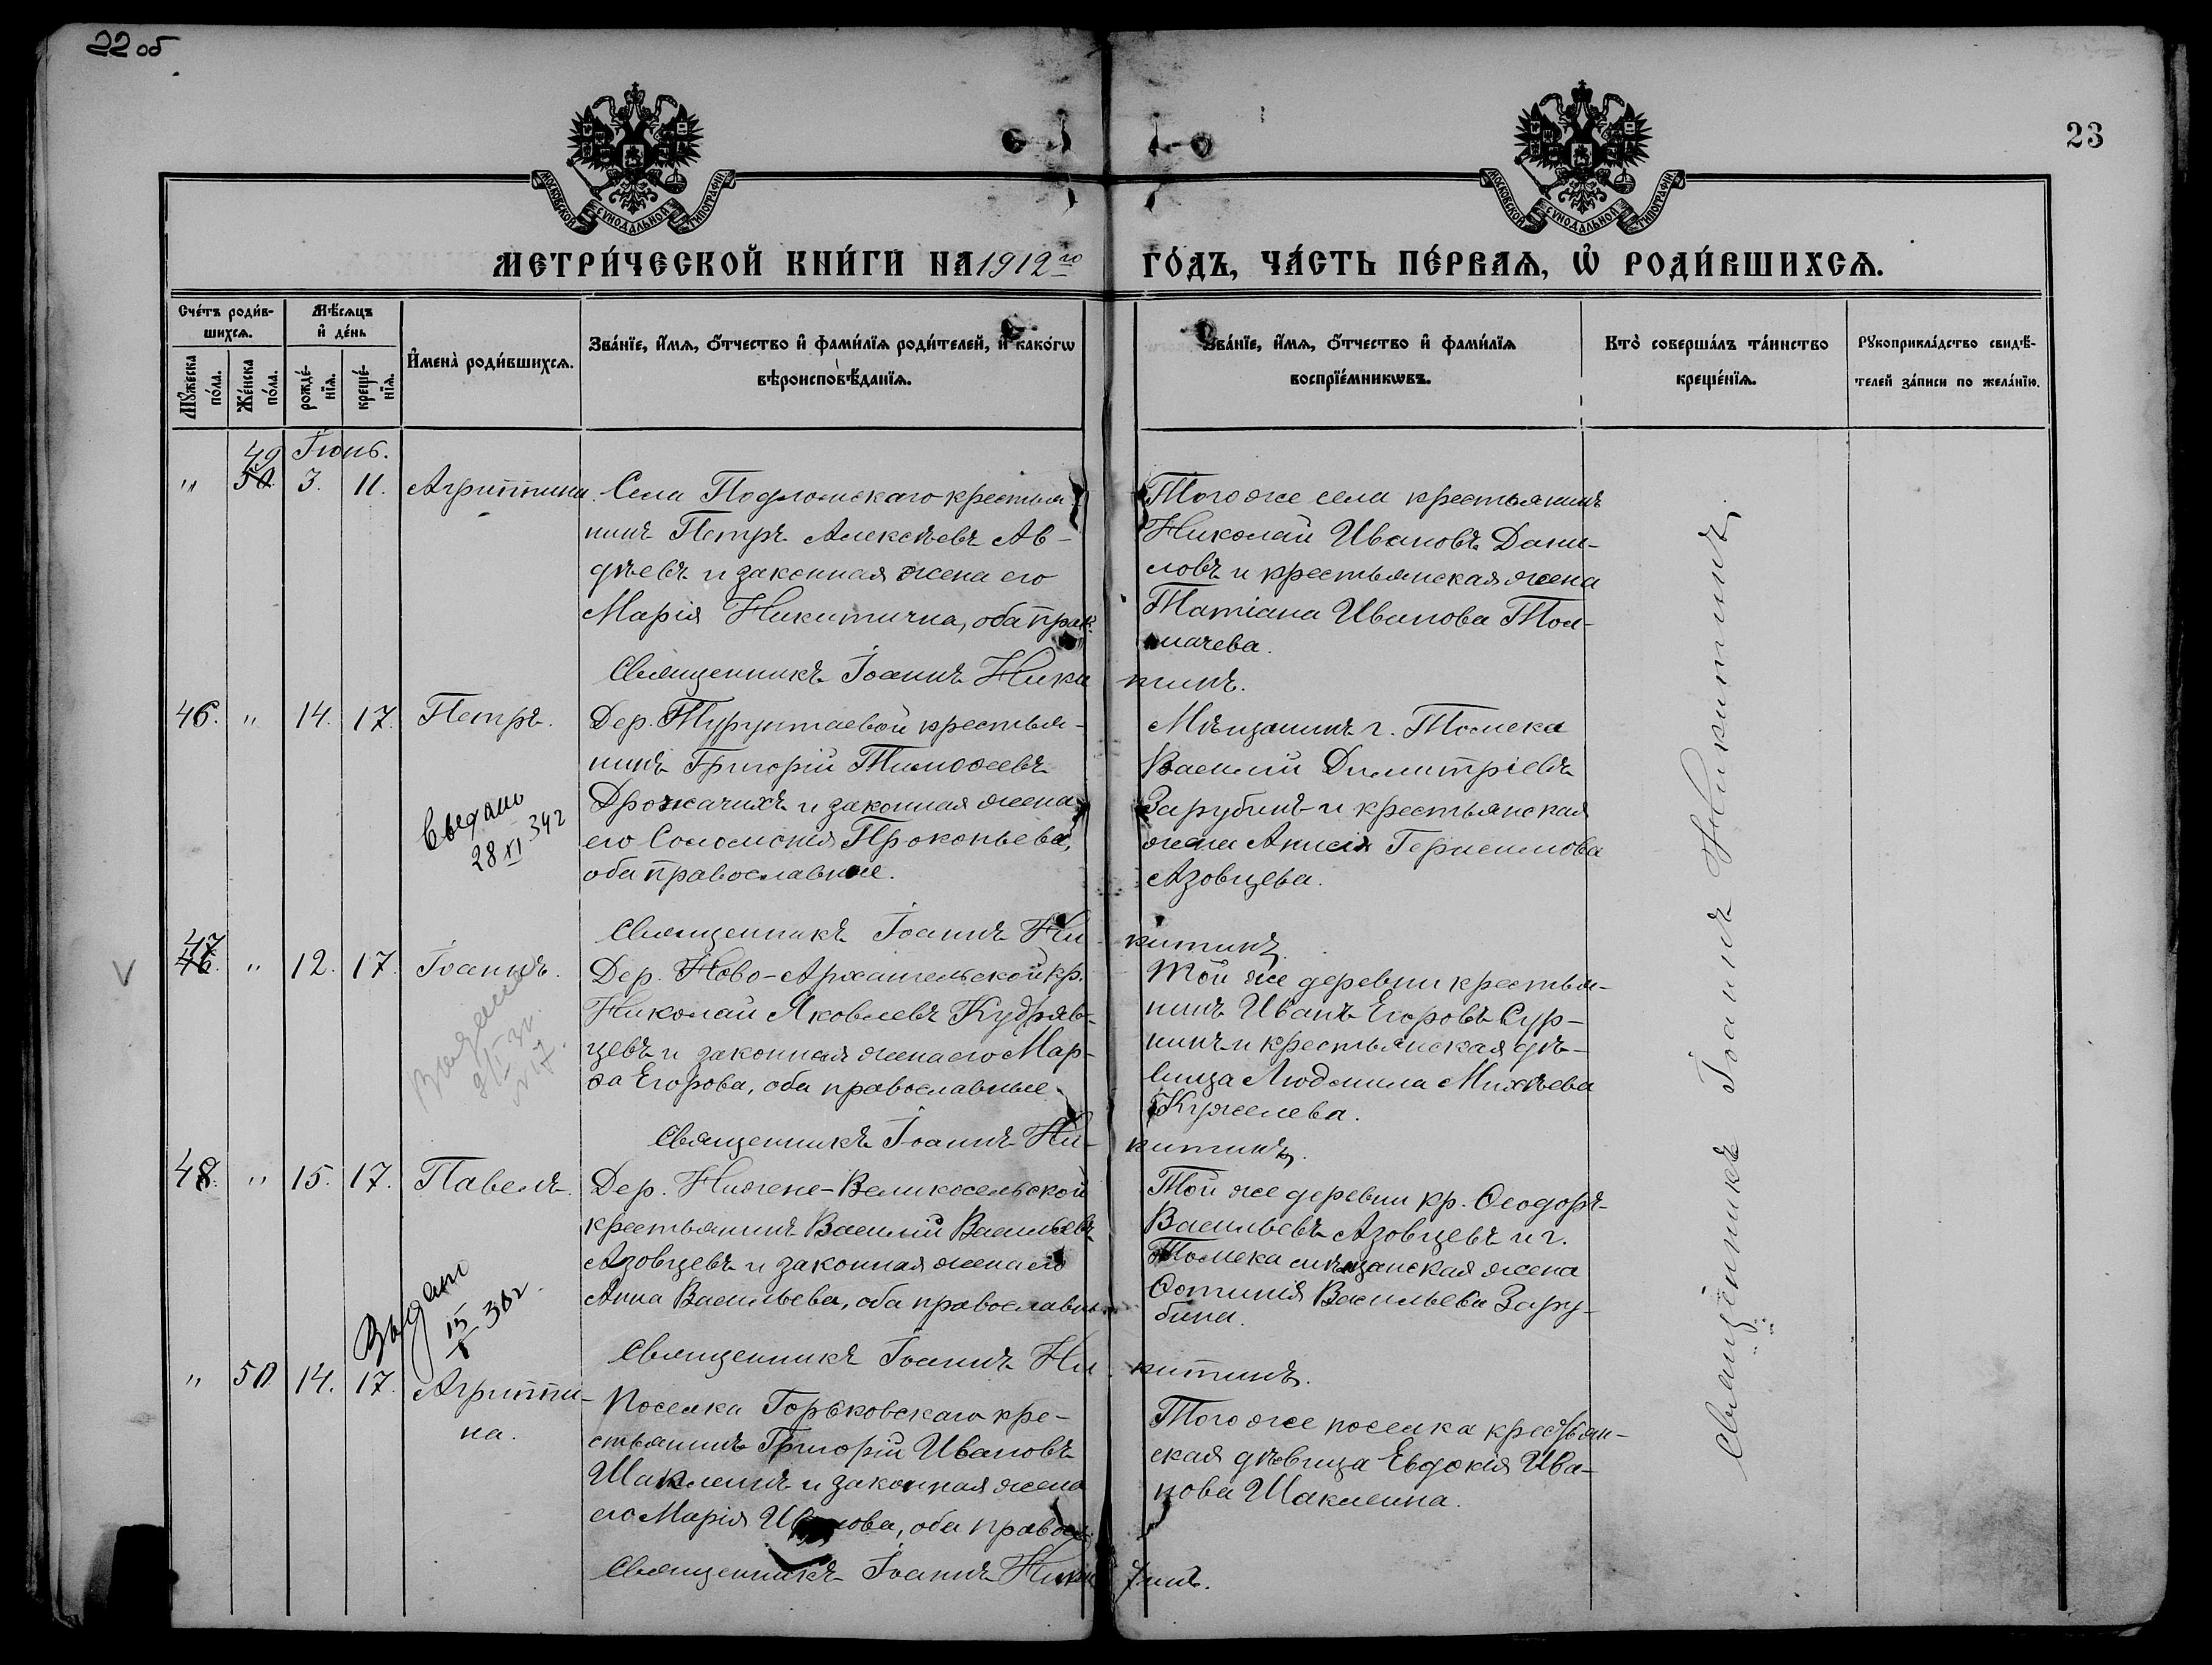 22 об
23
МОСКОВСКОЙ СУНОДАЛЬНОЙ ТИПОГРАФІИ
МОСКОВСКОЙ СУНОДАЛЬНОЙ ТИПОГРАФІИ
МЕТРИ́ЧЕСКОЙ КНИ́ГИ НА 1912го
ГО́ДЪ, ЧА́СТЬ ПЕ́РВАЯ, Ѡ҆ РОДИ́ВШИХСЯ.
Сче́тъ роди́в-
шихся.
Мꙋ́жеска по́ла.
Же́нска по́ла.
Мѣ́сяцъ
и҆ де́нь
рожде́-
нїя.
креще́-
нїя.
И҆мена̀ роди́вшихся.
Зва́нїе, и҆́мя, ѻ҆́тчество и҆ фами́лїя роди́телей, и҆ како́гѡ
вѣроисповѣ́данїя.
Зва́нїе, и҆́мя, ѻ҆́тчество и҆ фами́лїя
воспрїе́мникѡвъ.
Кто̀ соверша́лъ та́инство
креще́нїя.
Рꙋкоприкла́дство свидѣ́-
телей за́писи по жела́нїю.
49 Іюнь.
" 50. 3. 11. Агриппина.
Села Подломскаго крестья
нинъ Петръ Алексѣевъ Ав-
дѣевъ и законная жена его
Марія Никитична, оба прав.
Того же села крестьянинъ
Николай Ивановъ Дани-
ловъ и крестьянская жена
Татіана Иванова Тол-
мачева.
Священникъ Іоаннъ Ники тинъ.
46. " 14. 17. Петръ.
Дер. Турунтаевой крестья-
нинъ Григорій Тимоѳеевъ
Дрожачихъ и законная жена
его Соломонія Прокопьева,
оба православные.
28 XI 342
Мѣщанинъ г. Томска
Василій Димитріевъ
Зарубинъ и крестьянская
жена Анисія Герасимова
Азовцева.
Священникъ Іоаннъ Ни- китинъ.
47
46. " 12. 17. Іоаннъ.
Дер. Ново-Архангельской кр.
Николай Яковлевъ Кудряв-
цевъ и законная жена его Мар-
ѳа Егорова, оба православные
Той же деревни крестья-
нинъ Иванъ Егоровъ Сур-
нинъ и крестьянская дѣ-
вица Людмила Михѣева
Кужелева.
Священникъ Іоаннъ Ни- китинъ.
48. " 15. 17. Павелъ.
Дер. Нижне-Великосельской
крестьянинъ Василій Васильевъ
Азовцевъ и законная жена его
Анна Васильева, оба православн
Выдан
15
V 362
Той же деревни кр. Ѳеодоръ
Васильевъ Азовцевъ и г.
Томска мѣщанская жена
Фотинія Васильева Зару-
бина.
Священникъ Іоаннъ Ни китинъ.
" 50 14. 17. Агриппи-
на.
Поселка Горьковскаго кре-
стьянинъ Григорій Ивановъ
Шаклеинъ и законная жена
его Марія Иванова, оба правосл.
Того же поселка крестьян-
ская дѣвица Евдокія Ива-
нова Шаклеина.
Священникъ Іоаннъ Ники тинъ.
Священникъ Іоаннъ Никитинъ